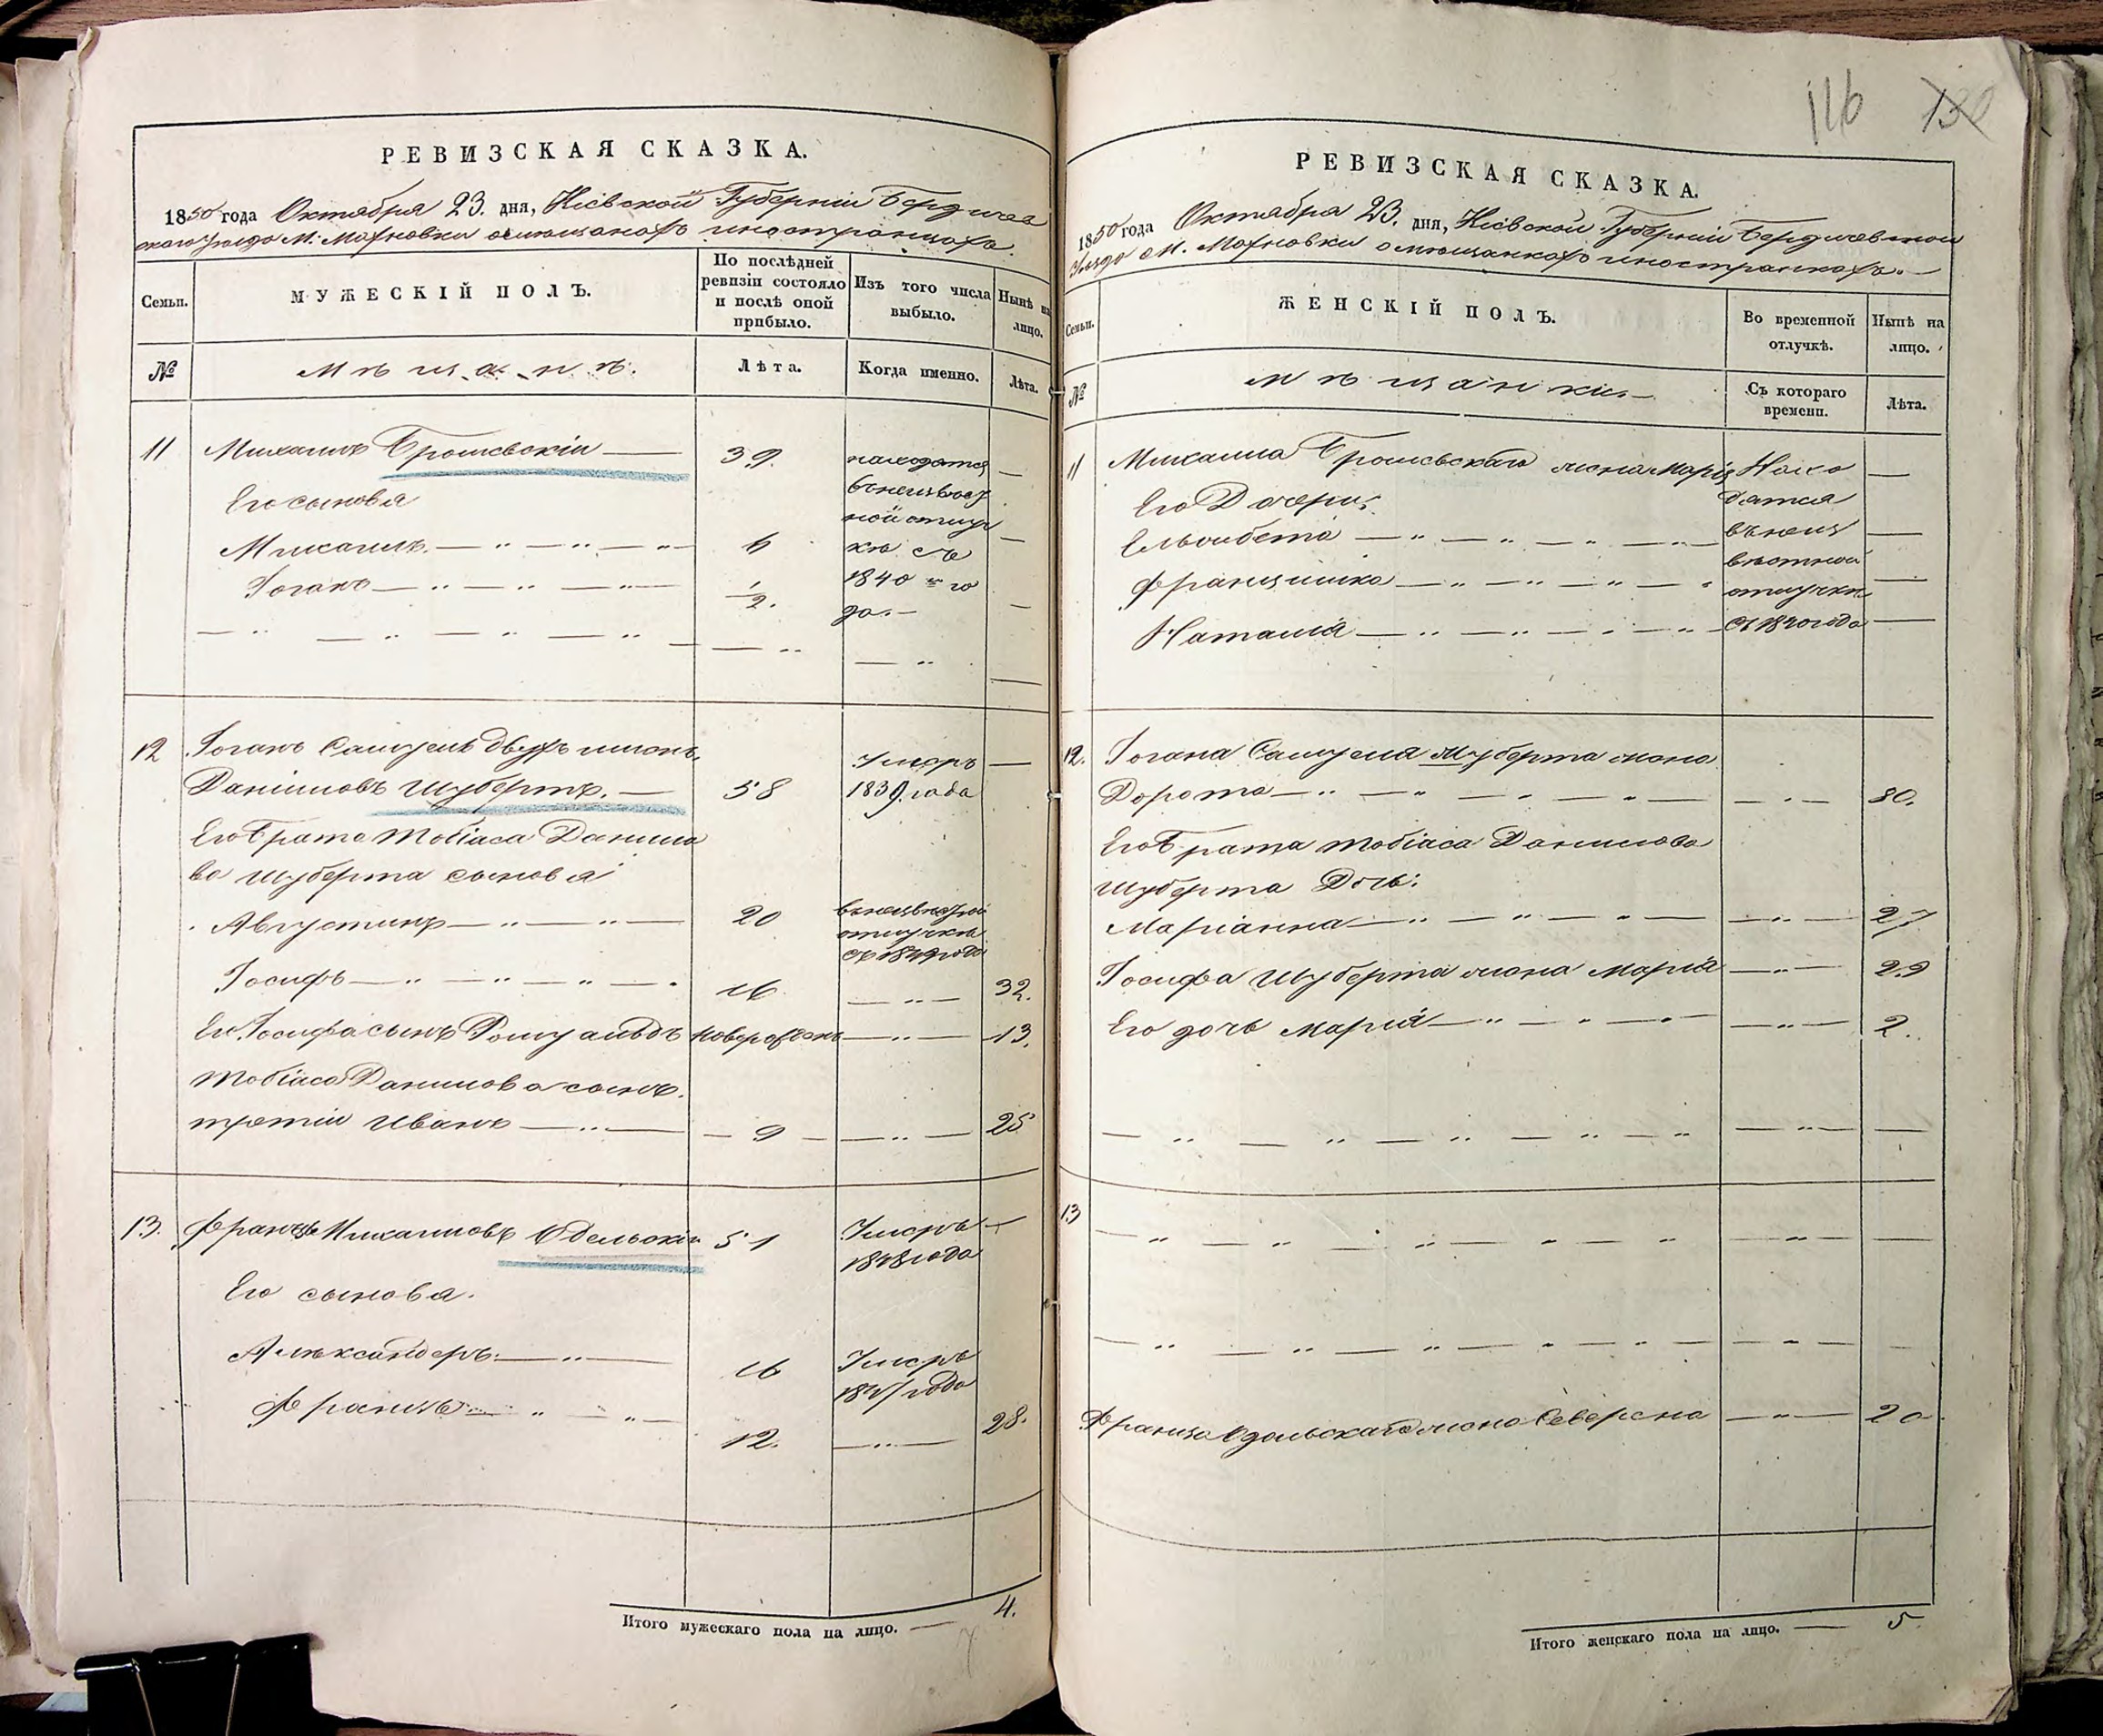 116 130
РЕВИЗСКАЯ СКАЗКА.
1850 года Октября 23. дня, Кіевской Губерніи Бердичев
скаго Уезда М. Махновки о мещанахъ иностранцахъ.
Семьи.
МУЖЕСКІЙ ПОЛЪ.
По послѣдней ревизіи состояло и послѣ оной прибыло.
Изъ того числа выбыло.
Нынѣ на лицо.
№
Мѣщанѣ.
Лѣта.
Когда именно.
Лѣта.
11 Михаилъ 39. находятся —
Его сыновья
Михаилъ. 6 кѣ съ —
Іоганъ 1/2. 1840 го
да. —
12 Іоганъ Самуель двухъ имянъ, Умеръ —
Даніиловъ Шубертъ. — 58 1839. года
Его брата Тобіаса Данило
ва Шуберта сыновья
Августинъ 20 въ неизвѣстной
отлучкѣ
съ 1849 года
Іосифъ 16 32.
Его Іосифа сынъ Ромуальдъ новорожденъ 13.
Тобіаса Данилова сынъ
третіи Иванъ 9 25
13. Францъ Михаиловъ Одельскіи 51 Умеръ —
1848 года
Его сыновья.
Александеръ. 16 Умеръ
1847 года
Францъ 12. 28.
Итого мужескаго пола на лицо. — 4.
РЕВИЗСКАЯ СКАЗКА.
1850 года Октября 23. дня, Кіевской Губерніи Бердичевскаго
Уезда М. Махновки о мещанкахъ иностранкахъ. —
Семьи.
ЖЕНСКІЙ ПОЛЪ.
Во временной отлучкѣ.
Нынѣ на лицо.
№
Мѣщанки. —
Съ котораго времени.
Лѣта.
11 Михаила жена Марія Нахо —
Его Дочери: дятся
Ельзибета въ неиз —
Францишка отлучкѣ —
Наталія съ 1840 года —
12. Іогана Самуеля Шуберта жена
Дорота 80.
Его брата Тобіаса Данилова
Шуберта Дочь:
Маріанна 27
Іосифа Шуберта жена Марія 29
Его дочь Марія 2.
13
Франца Одельскаго жена Северена 20.
Итого женскаго пола на лицо. — 5